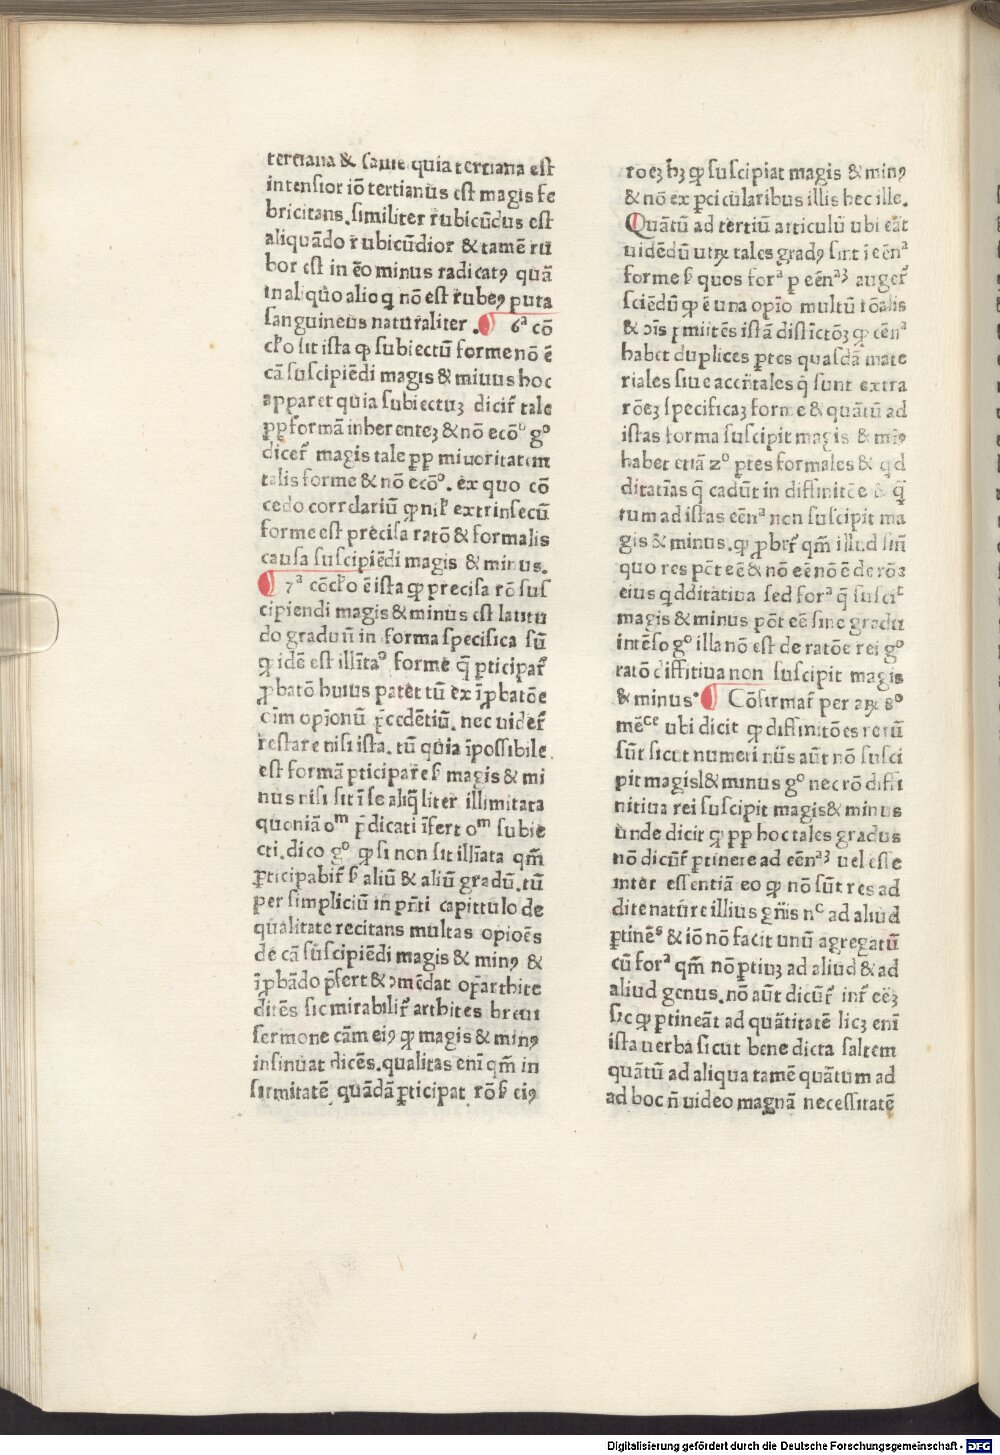 tertiana & same quia tertiana est
intensior iō tertianus est magis fe
bricitans. similiter rubicūdus est
aliquādo rubicūdior & tamē ru
bor est in ēo minus radicatꝯ quā
in aliquo alio q nō est rubeꝯ puta
sanguineus naturaliter. 6ᵃ cō
cłᵒ sit ista ꝙ subiectū forme nō ē
cā suscipiēdi magis & minus hoc
apparet quia subiectuꝫ dicir̄ tale
ꝓp formā inherenteꝫ & nō ecōᵒ gᵒ
dicer̄ magis tale ꝓp minoritatem
talis forme & nō ecōᵒ. ex quo cō
cedo correlariū ꝙ nil̄ extrinsecū
forme est precisa ratō & formalis
causa suscipiēdi magis & minus.
7ᵃ cōcłᵒ ē ista ꝙ precisa rō sus
cipiendi magis & minus est latitu
do graduū in forma specifica sū
ꝙ idē est illīta° forme q̄ ꝑticipar̄
ꝓbatō huius patet tū ex īꝓbatōe
oīm opionū p̄cedētiū. nec uider̄
restare nisi ista. tū quia īpossibile
est formā ꝑticipare ẜ magis & mi
nus nisi sit ī se aliq̄liter illimitata
quoniā oᵐ p̄dicati īfert oᵐ subie
cti. dico gᵒ ꝙ si non sit illīata qm̄
ꝑticipabir̄ ẜ aliū & aliū gradū. tū
per simpliciū in pn̄ti capittulo de
qualitate recitans multas opioēs
de cā suscipiēdi magis & minꝯ &
īꝓbādo p̄fert & ↄmēdat op̄arthite
ditēs sic mirabilir̄ arthites breui
sermone cām eiꝯ ꝙ magis & minꝯ
insinuat dicēs. qualitas enī qm̄ in
firmitatē quādā ꝑticipat rō ẜ eiꝯ
roeꝫ hꝫ ꝙ suscipiat magis & minꝯ
& nō ex ꝑticularibus illis hec ille.
Quātū ad tertiū articulū ubi eāt
uidēdū utrꝫ tales gradꝯ sint ī eēnᵃ
forme ẜ quos forᵃ ꝑ eēnᵃꝫ auger̄
sciēdū ꝙ ē una opio multū rōalis
& ↄīs ꝑmittēs istā distictōꝫ ꝙ eēnᵃ
habet duplices ꝑtes quasdā mate
riales siue accn̄tales q̄ sunt extra
rōeꝫ specificaꝫ forme & quātū ad
istas forma suscipit magis & miꝯ
habet etiā 2ᵒ ꝑtes formales & qd
ditatiās q̄ cadūt in diffinitōe & q̄
tum ad istas eēnᵃ non suscipit ma
gis & minus. ꝙ ꝓbr̄ qm̄ illud sin̄
quo res pōt eē & nō eē nō ē de rōē
eius qdditatiua sed forᵃ q̄ suscīᵗ
magis & minus pōt eē sine gradu
intēso gᵒ illa nō est de ratōe rei gᵒ
ratō diffitiua non suscipit magis
& minus. Cōfirmar̄ per arꝫ 8ᵒ
mēᶜᵉ ubi dicit ꝙ diffinitōes rerū
sūt sicut numeri niīs aūt nō susci
pit magis & minus gᵒ nec rō diffi
nitiua rei suscipit magis & minus
unde dicit ꝙ ꝓp hoc tales gradus
nō dicūr̄ ꝑtinere ad eēnᵃꝫ uel esse
inter essentiā eo ꝙ nō sūt res ad
dite nature illius gn̄is nᶜ ad aliud
ꝑtinēˢ & iō nō facit unū agregatū
cū forᵃ qm̄ nō ꝑtiuꝫ ad aliud & ad
aliud genus. nō aūt dicūr̄ inr̄ eēꝫ
sic ꝙ ꝑtineāt ad quātitatē licꝫ enī
ista uerba sicut bene dicta saltem
quātū ad aliqua tamē quātum ad
ad hoc n̄ uideo magnā necessitatē
Digitalisierung gefördert durch die Deutsche Forschungsgemeinschaft - DFG